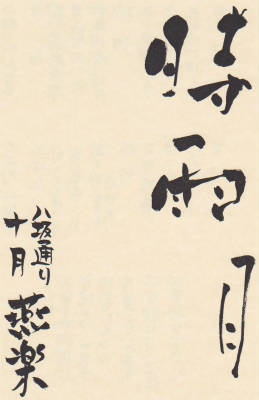 時雨月
八坂通り
十月
燕楽